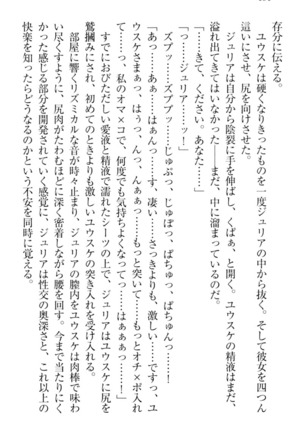 存分に伝える。
　ユウスケは硬くなりきったものを一度ジュリアの中から抜く。そして彼女を四つん
這いにさせ、尻を向けさせた。
　ジュリアは自分から陰裂に手を伸ばし、くぱぁ、と開く。ユウスケの精液はまだ、
溢れ出てきてはいなかった――まだ、中に溜まっているのだ。
「……きて、ください。あなた……」
「――ジュリアーーッ！」
　ズブッ……ズブブッ……じゅぷっ、じゅぽっ、ぱちゅっ、ぱちゅんっ……！
「あっ……あぁっ……はぁんっ……す、凄い……さっきよりも、激しい……ですっ、ユ
ウスケさまぁっ、はぅっ、んっ、んぁぁっ……もっと突いて……もっとオチ×ポ入れ
てっ……っ、私のオマ×コで、何度でも気持ちよくなってっ……はぁぁぁっ……！」
　すでにおびただしい愛液と精液で濡れたシーツの上で、ジュリアはユウスケに尻を
鷲掴みにされ、初めてのときよりも激しいユウスケの突き入れを受け入れる。
　部屋に響くリズミカルな音が時々止まり、ジュリアの膣内をユウスケは肉棒で味わ
い尽くすように、尻肉がたわむほどに深く密着しながら腰を回す。今まで当たりにく
かった感じる部分を開発されていく感覚に、ジュリアは性交の奥深さと、これ以上の
快楽を知ったらどうなるのかという不安を同時に覚える。